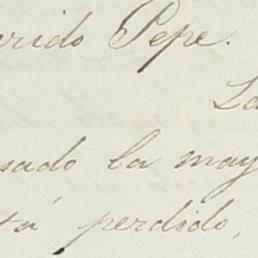 rido Pepe.
La
sado la may
tá perdido,